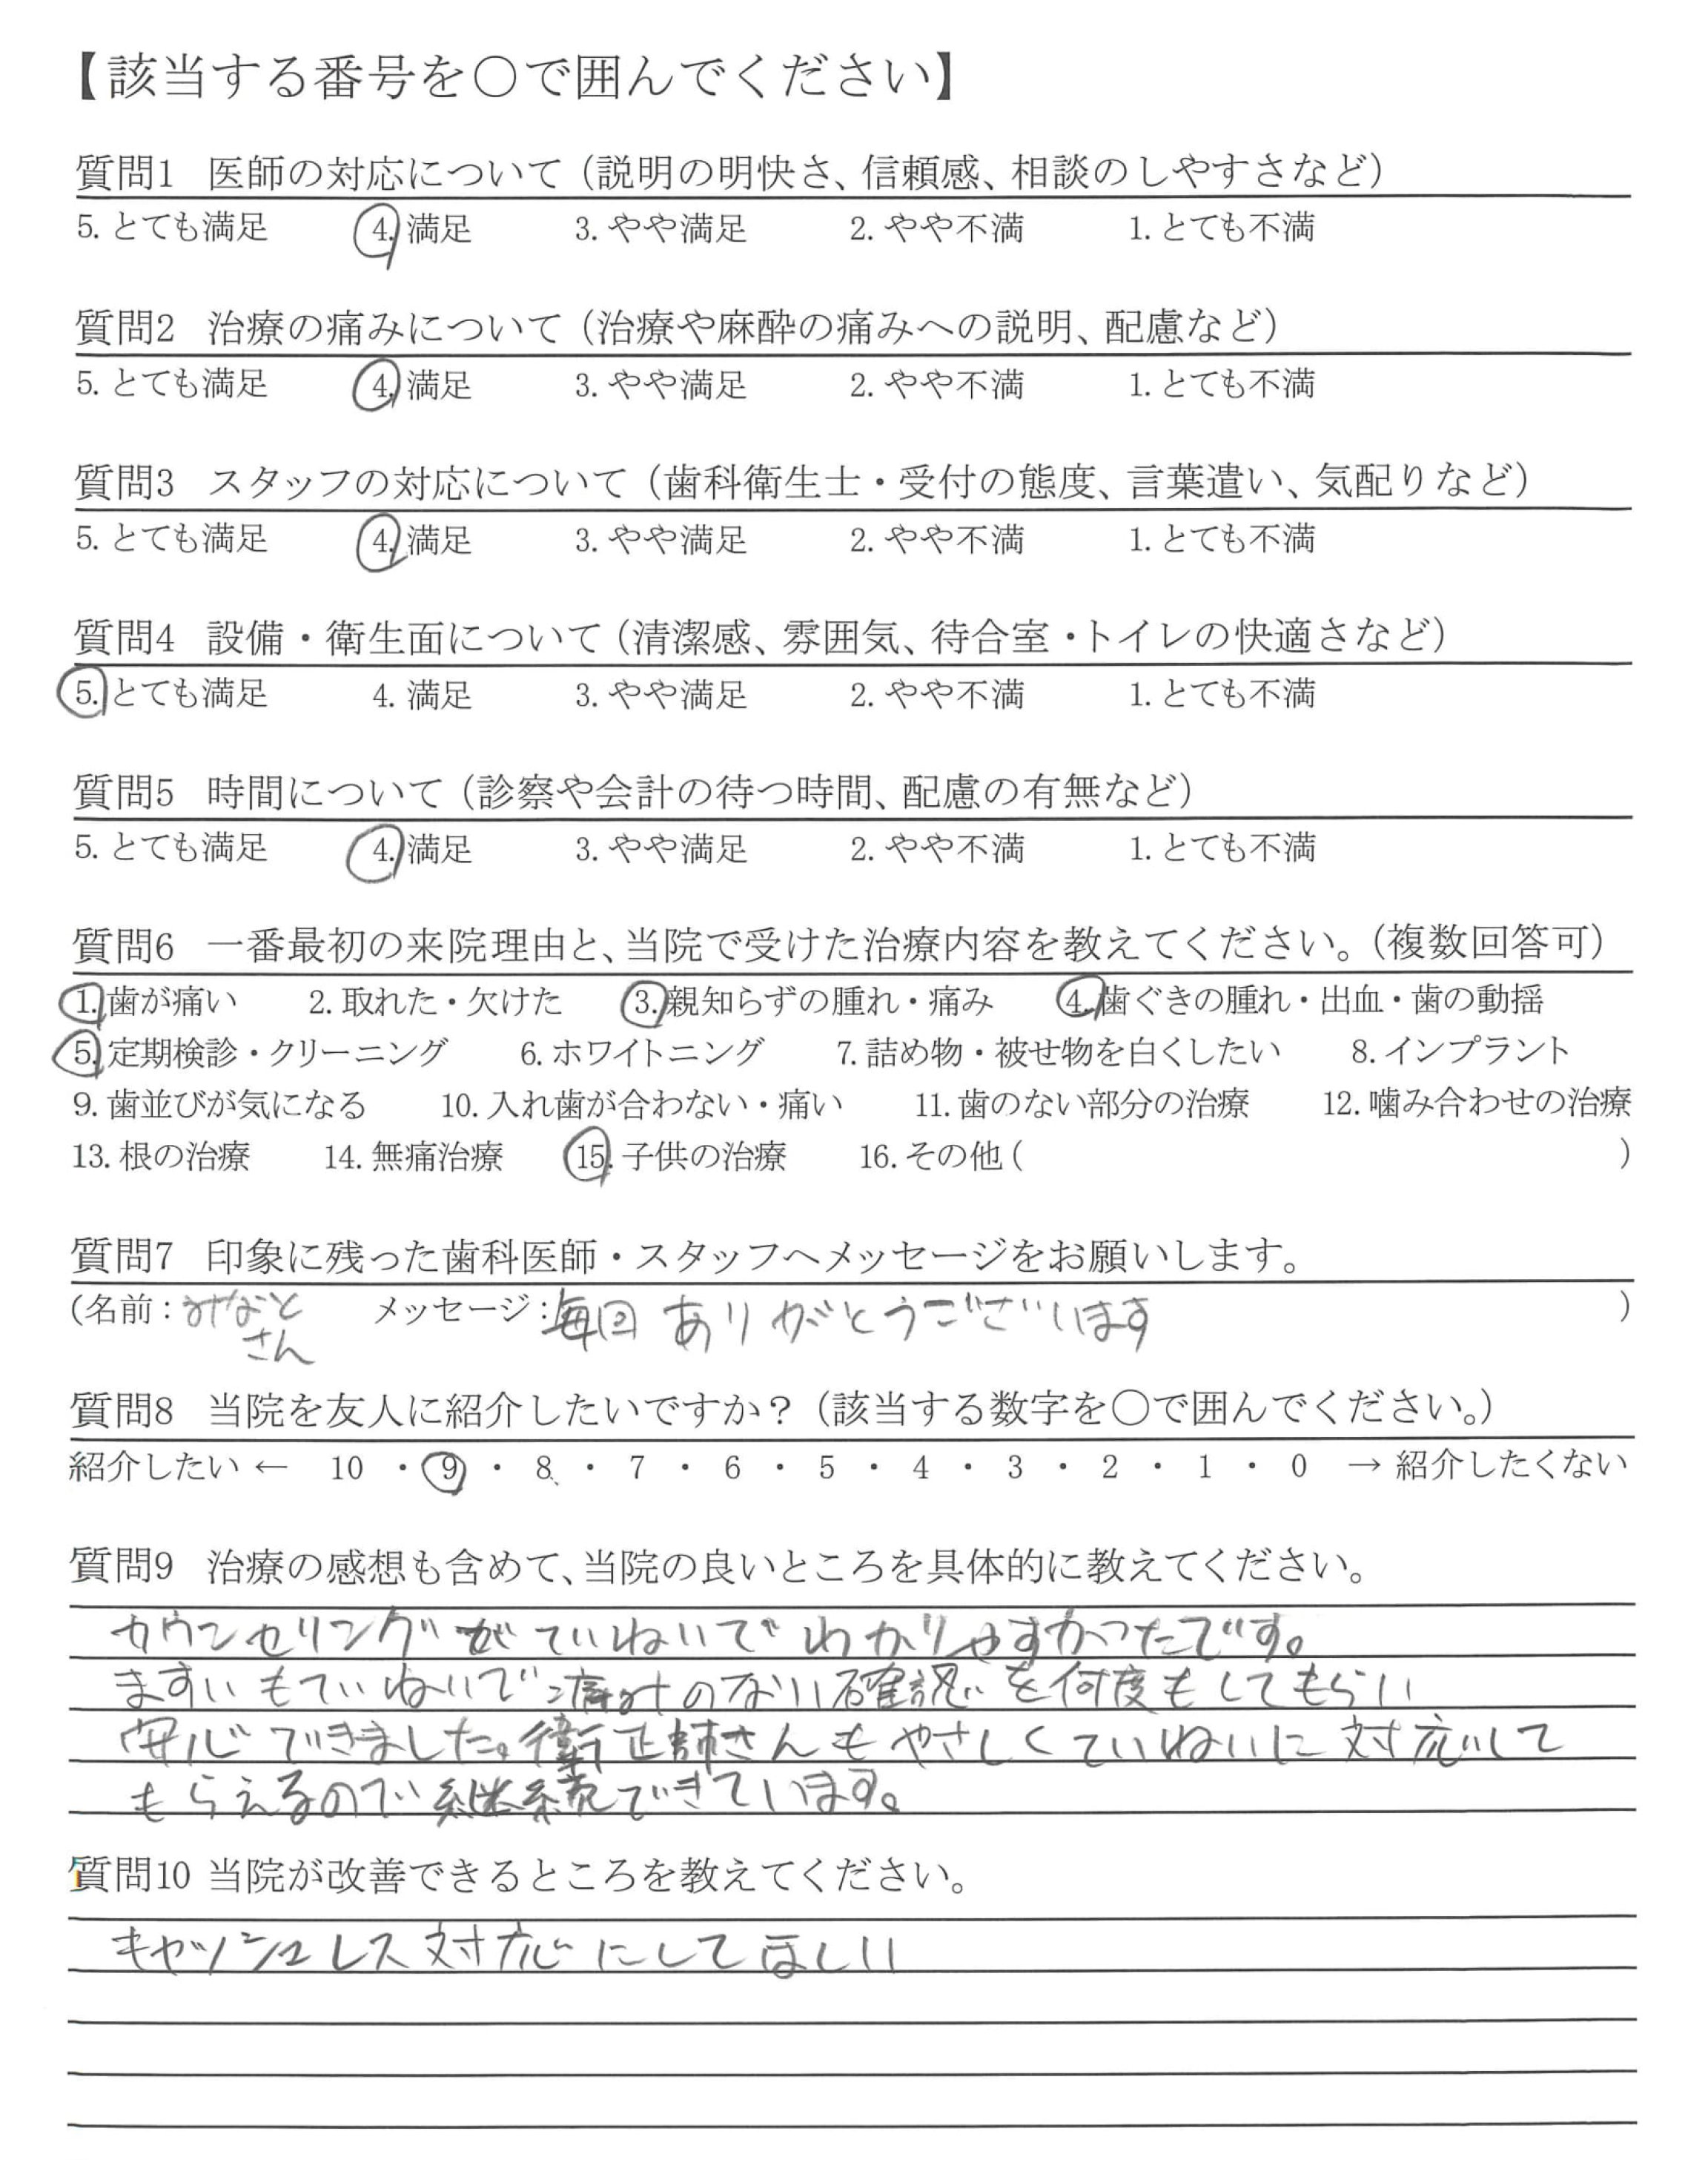 【該当する番号を○で囲んでください】
質問1 医師の対応について（説明の明快さ、信頼感、相談のしやすさなど）
5. とても満足 4. 満足 3. やや満足 2. やや不満 1. とても不満
質問2 治療の痛みについて（治療や麻酔の痛みへの説明、配慮など）
5. とても満足 4. 満足 3. やや満足 2. やや不満 1. とても不満
質問3 スタッフの対応について（歯科衛生士・受付の態度、言葉遣い、気配りなど）
5. とても満足 4. 満足 3. やや満足 2. やや不満 1. とても不満
質問4 設備・衛生面について（清潔感、雰囲気、待合室・トイレの快適さなど）
5. とても満足 4. 満足 3. やや満足 2. やや不満 1. とても不満
質問5 時間について（診察や会計の待つ時間、配慮の有無など）
5. とても満足 4. 満足 3. やや満足 2. やや不満 1. とても不満
質問6 一番最初の来院理由と、当院で受けた治療内容を教えてください。（複数回答可）
1. 歯が痛い 2. 取れた・欠けた 3. 親知らずの腫れ・痛み 4. 歯ぐきの腫れ・出血・歯の動揺
5. 定期検診・クリーニング 6. ホワイトニング 7. 詰め物・被せ物を白くしたい 8. インプラント
9. 歯並びが気になる 10. 入れ歯が合わない・痛い 11. 歯のない部分の治療 12. 噛み合わせの治療
13. 根の治療 14. 無痛治療 15. 子供の治療 16. その他 ( )
質問7 印象に残った歯科医師・スタッフへメッセージをお願いします。
（名前：みなと メッセージ：毎回 ありがとうございます ）
さん
質問8 当院を友人に紹介したいですか？（該当する数字を○で囲んでください。）
紹介したい ← 10 ・ 9 ・ 8 ・ 7 ・ 6 ・ 5 ・ 4 ・ 3 ・ 2 ・ 1 ・ 0 → 紹介したくない
質問9 治療の感想も含めて、当院の良いところを具体的に教えてください。
カウンセリングがていねいでわかりやすかったです。
ますいもていねいで痛みのない確認を何度もしてもらい
安心できました。衛正師さんもやさしくていねいに対応して
もらえるので継続できています。
質問10 当院が改善できるところを教えてください。
キャッシュレス対応にしてほしい